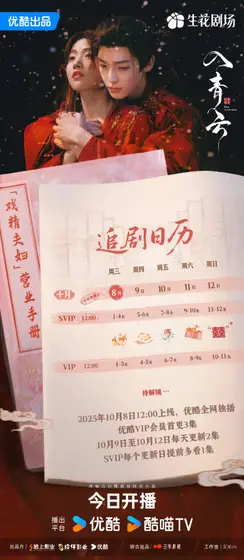 优酷出品
生花剧场
入青云
「戏精夫妇」营业手册
追剧日历
周三 周四 周五 周六 周日
十月 8 9 10 11 12
SVIP 12:00 1-4集 5-6集 7-8集 9-10集 11-12集
VIP 12:00 1-3集 4-5集 6-7集 8-9集 10-11集
待解锁
2025年10月8日12:00上线，优酷全网独播
优酷VIP会员首更3集
10月9日至10月12日每天更新2集
SVIP每个更新日提前多看1集
今日开播
播出平台 优酷 酷喵TV